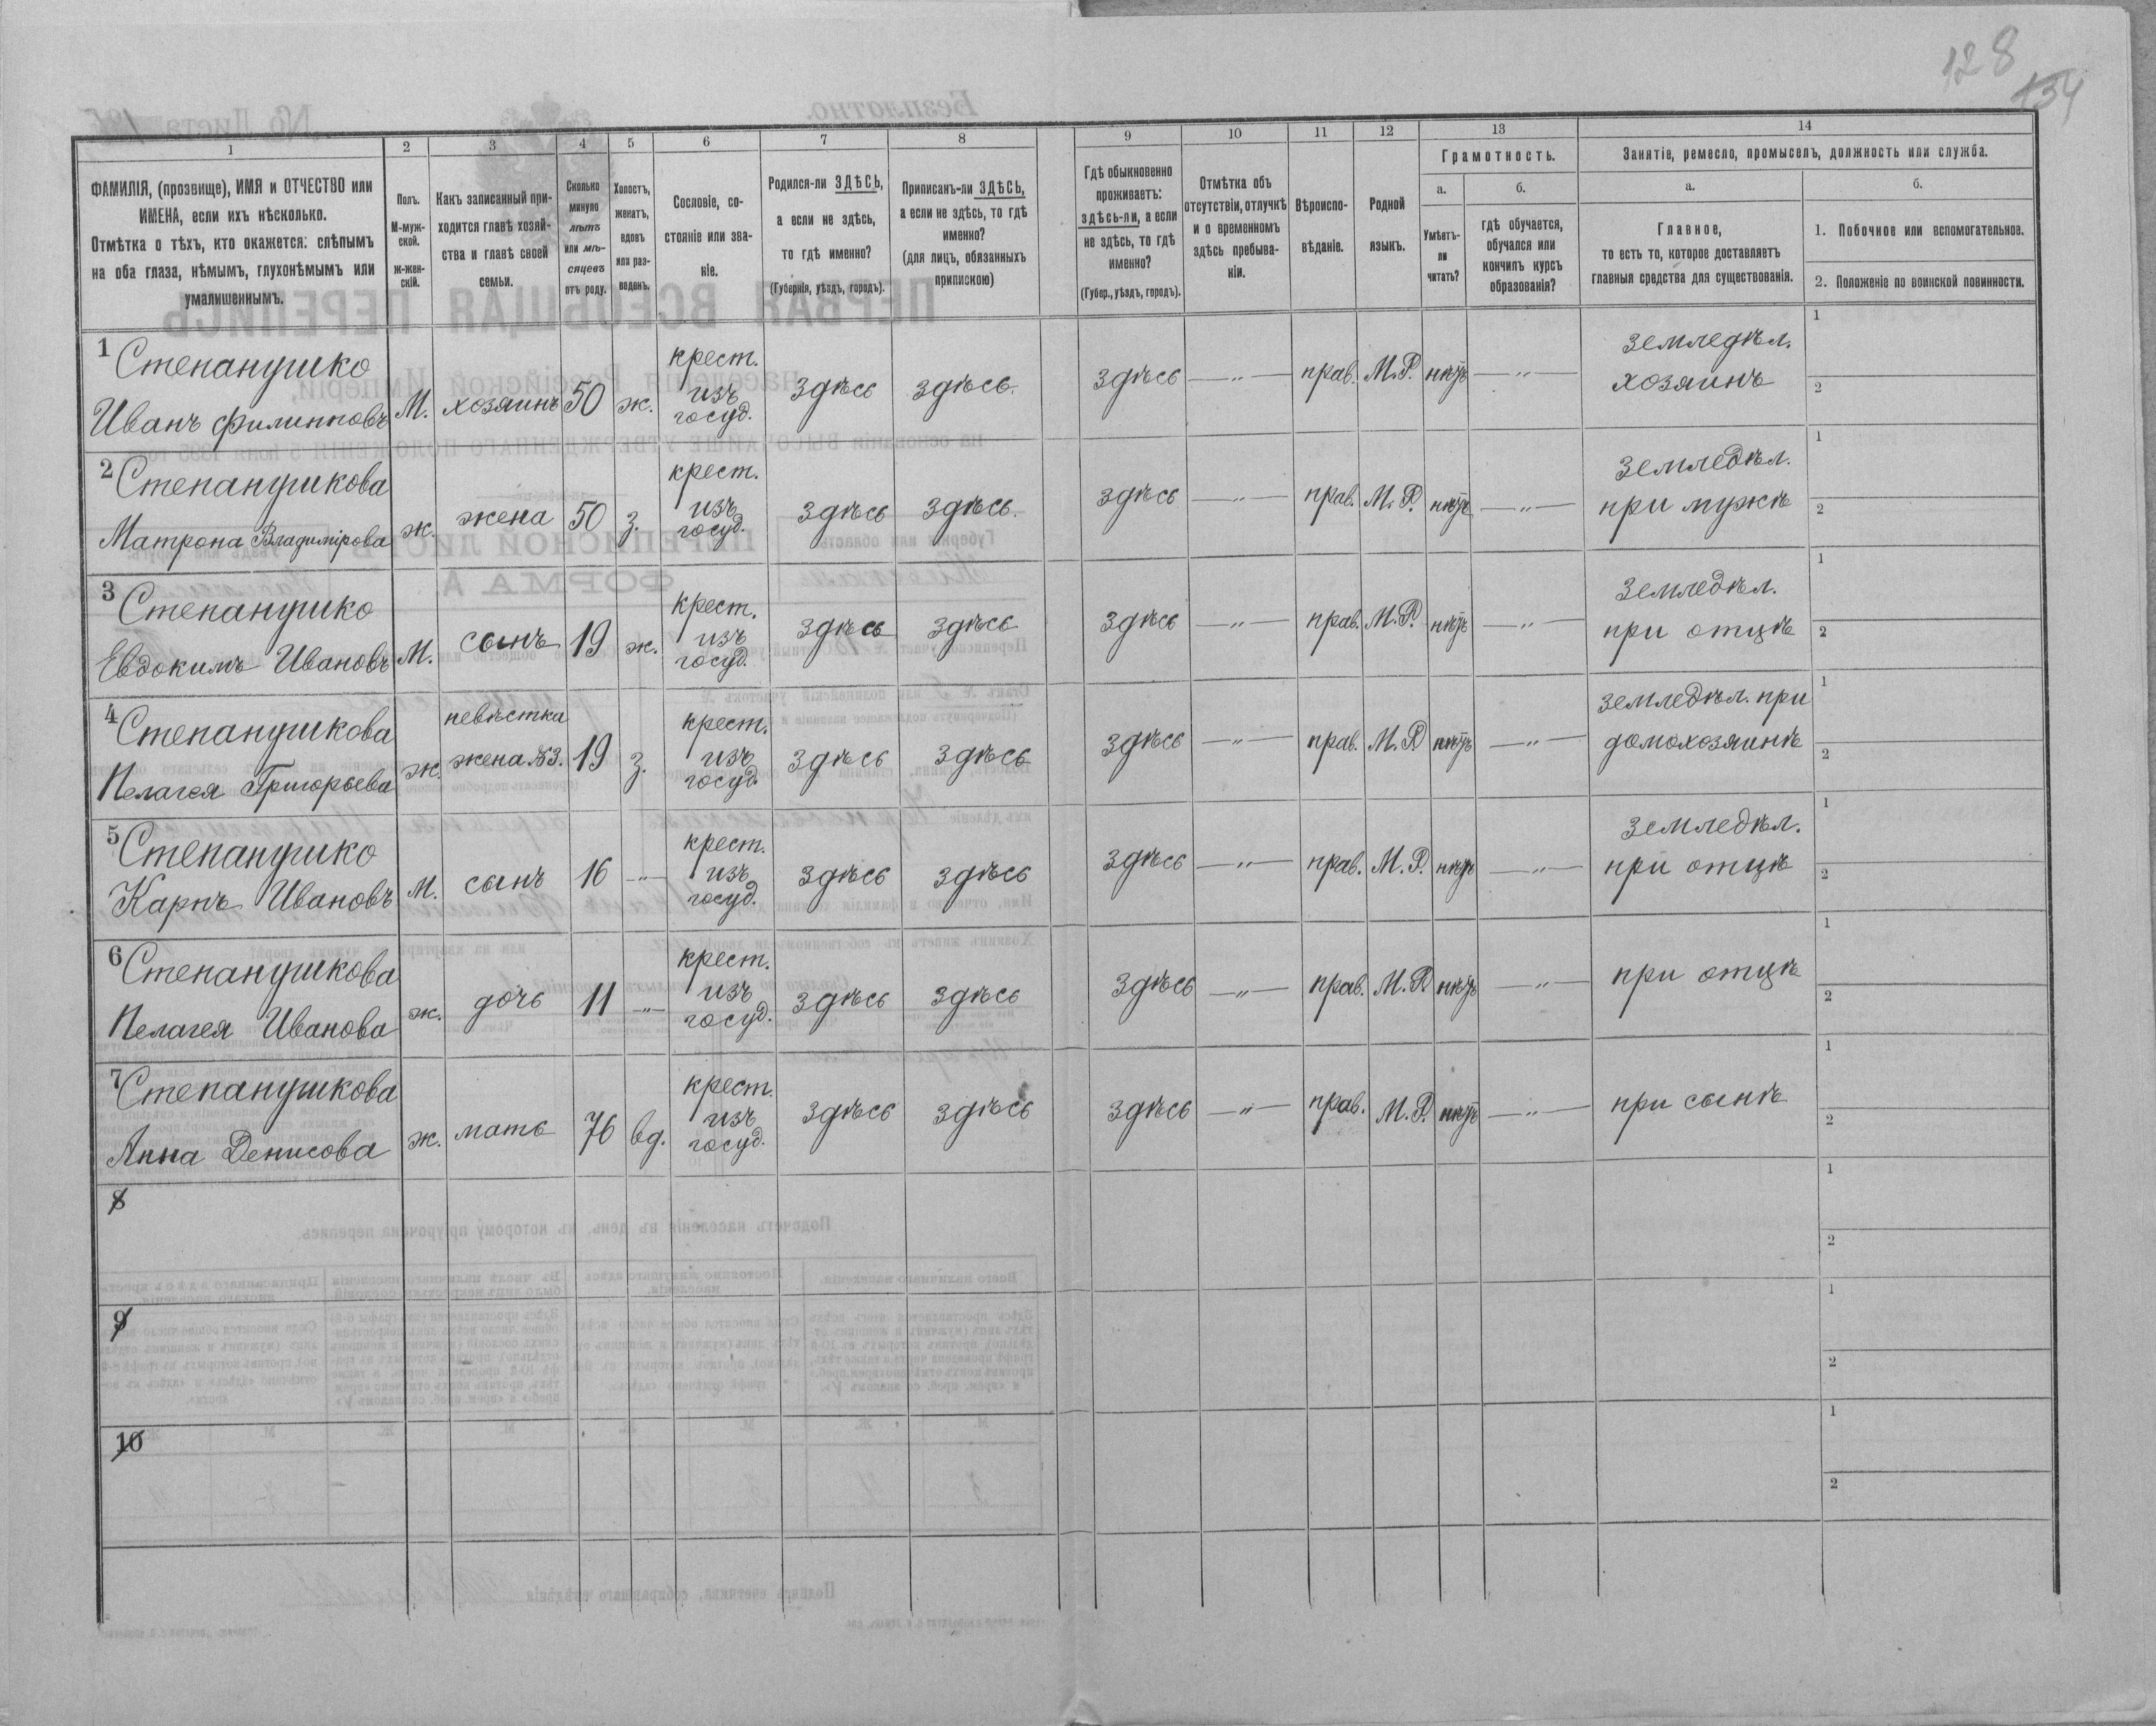 128
134
1
2
3
4
5
6
7
8
9
10
11
12
13
14
ФАМИЛІЯ, (прозвище), ИМЯ и ОТЧЕСТВО или
ИМЕНА, если ихъ нѣсколько.
Отмѣтка о тѣхъ, кто окажется: слѣпымъ
на оба глаза, нѣмымъ, глухонѣмымъ или
умалишеннымъ.
Полъ.
М-муж-
ской.
ж-жен-
скій.
Какъ записанный при-
ходится главѣ хозяй-
ства и главѣ своей
семьи.
Сколько
минуло
лѣтъ
или мѣ-
сяцевъ
отъ роду.
Холостъ,
женатъ,
вдовъ
или раз-
веденъ.
Сословіе, со-
стояніе или зва-
ніе.
Родился-ли ЗДѢСЬ,
а если не здѣсь,
то гдѣ именно?
(Губернія, уѣздъ, городъ).
Приписанъ-ли ЗДѢСЬ,
а если не здѣсь, то гдѣ
именно?
(для лицъ, обязанныхъ
припискою)
Гдѣ обыкновенно
проживаетъ:
здѣсь-ли, а если
не здѣсь, то гдѣ
именно?
(Губер., уѣздъ, городъ).
Отмѣтка объ
отсутствіи, отлучкѣ
и о временномъ
здѣсь пребыва-
ніи.
Вѣроиспо-
вѣданіе.
Родной
языкъ.
Грамотность.
а.
б.
Умѣетъ-
ли
читать?
гдѣ обучается,
обучался или
кончилъ курсъ
образованія?
Занятіе, ремесло, промыселъ, должность или служба.
а.
б.
Главное,
то есть то, которое доставляетъ
главныя средства для существованія.
1. Побочное или вспомогательное.
2. Положеніе по воинской повинности.
1 Степанушко
Иванъ Филипповъ М. хозяинъ 50 ж. крест. изъ госуд. здѣсь здѣсь. здѣсь —„— прав. М.Р. нѣтъ —„— земледѣл. хозяинъ 1 2
2 Степанушкова
Матрона Владимірова ж. жена 50 з. крест. изъ госуд. здѣсь здѣсь. здѣсь —„— прав. М.Р. нѣтъ —„— земледѣл. при мужѣ 1 2
3 Степанушко
Евдокимъ Ивановъ М. сынъ 19 ж. крест. изъ госуд. здѣсь здѣсь здѣсь —„— прав. М.Р. нѣтъ —„— земледѣл. при отцѣ 1 2
4 Степанушкова
Пелагея Григорьева ж. невѣстка жена №3. 19 з. крест. изъ госуд. здѣсь здѣсь здѣсь —„— прав. М.Р нѣтъ —„— земледѣл. при домохозяинѣ 1 2
5 Степанушко
Карпъ Ивановъ М. сынъ 16 —„— крест. изъ госуд. здѣсь здѣсь здѣсь —„— прав. М.Р. нѣтъ —„— земледѣл. при отцѣ 1 2
6 Степанушкова
Пелагея Иванова ж. дочь 11 —„— крест. изъ госуд. здѣсь здѣсь здѣсь —„— прав. М.Р нѣтъ —„— при отцѣ 1 2
7 Степанушкова
Анна Денисова ж. мать 76 вд. крест. изъ госуд. здѣсь здѣсь здѣсь —„— прав. М.Р. нѣтъ —„— при сынѣ 1 2
8 1 2
9 1 2
10 1 2